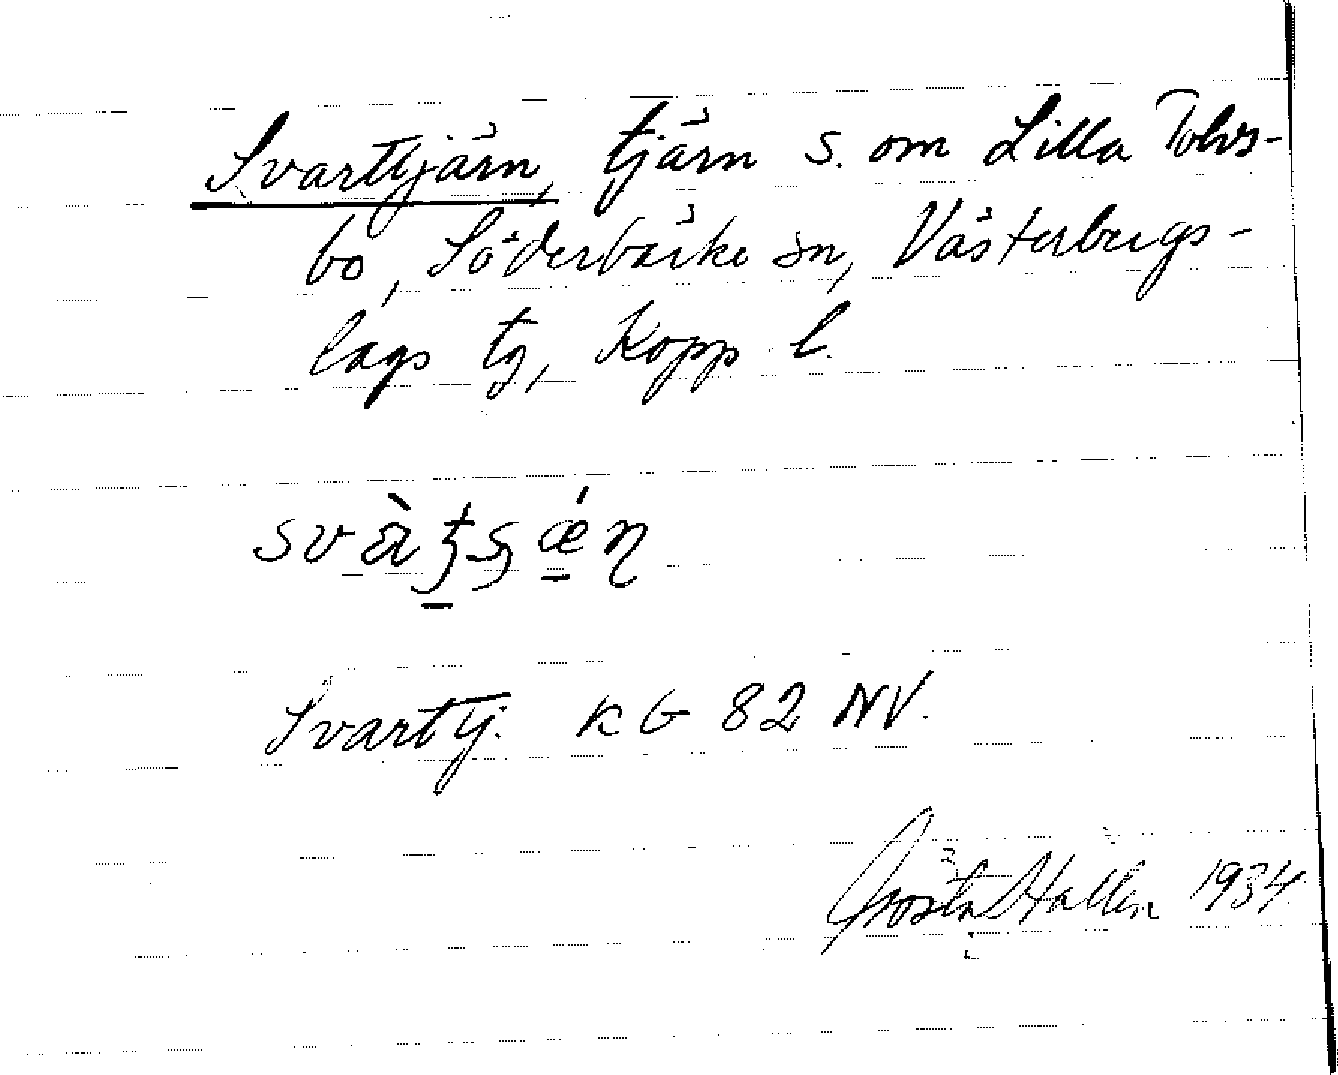 Svarttjärn, tjärn S. om Lilla Tolvs-
bo, Söderbärke sn, Västerbergs-
lags tg, Kopp l.
Svarttj. KG 82 NV.
Gösta Hallén 1934